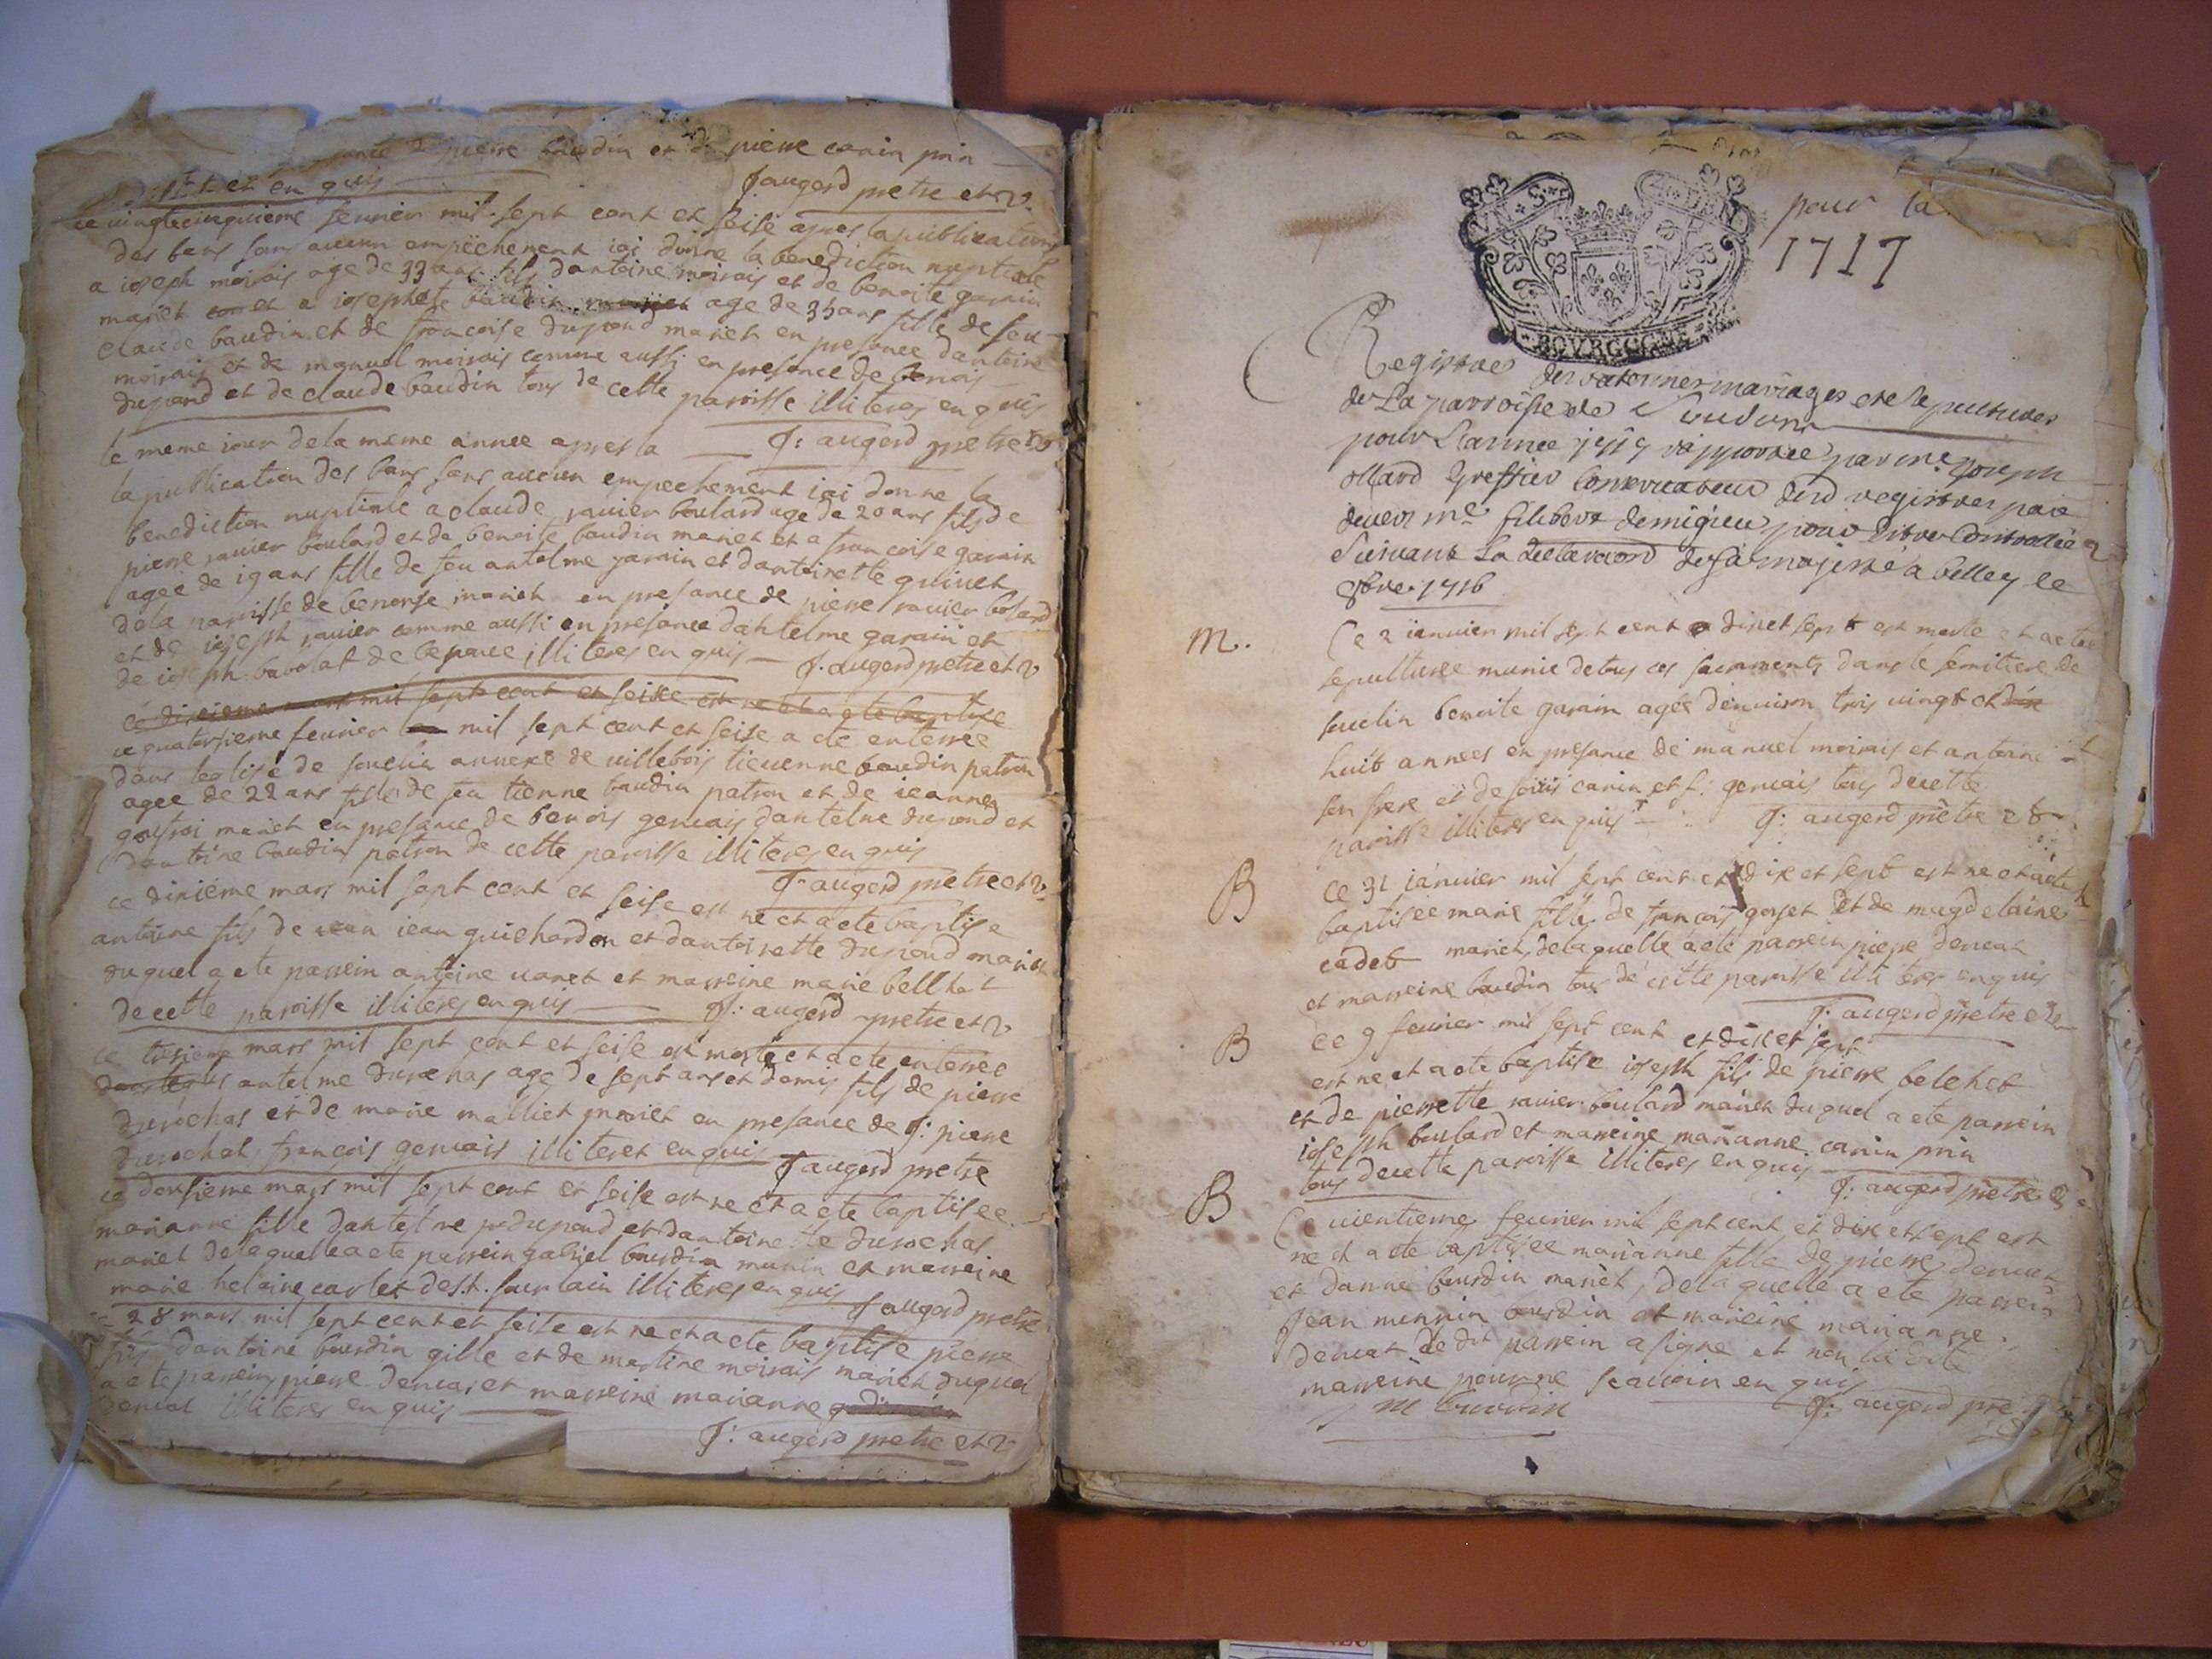 pierre baudin et de pierre carin prin
illiteres en quis J augerd pretre et v.
ce vingtecinquieme feurier mil sept cent et seise apres la publications
des bans sans aucun empechement iai donne la benediction nuptiale
a ioseph moirais age de 33 ans fils dantoine moirais et de benoite garain
mariet et a iosephte baudin age de 35 ans fille de feu
claude baudin et de francoise dupond mariet en presance dantoine
moirais et de manuel moirais comme aussi en presance de benois
dupond et de claude baudin tous de cette paroisse illiteres en quis
J: augerd pretre et v
le meme iour de la meme annee apres la
la publication des bans sans aucun empechement iai donne la
benediction nuptiale a claude rauier boulard age de 20 ans fils de
pierre rauier boulard et de benoite baudin mariet et a francoise garain
agee de 19 ans fille de feu antelme garain et dantoinette quinet
de la paroisse de benonse mariet en presance de pierre rauier bolard
et de ioseph rauier comme aussi en presance dantelme garain et
de ioseph de illiteres en quis J. augerd pretre et v
ce dixieme mars mil sept cent et seise est ne et a ete baptise
ce quatorsieme feurier mil sept cent et seise a ete enterree
dans leglise de souclin annexe de villebois tieuenne baudin patron
agee de 22 ans fille de feu tienne baudin patron et de ieanne
mariet en presance de benois geruais dantelme dupond et
dantoine baudin patron de cette paroisse illiteres en quis
J. augerd pretre et v
ce dixieme mars mil sept cent et seise est ne et a ete baptise
antoine fils de iean guichardon et dantoinette dupond mariet
duquel a ete parrein antoine uaret et marreine marie bellhet
de cette paroisse illiteres en quis J: augerd pretre et v
ce tresieme mars mil sept cent et seise est morte et a ete enterree
antelme durochas age de sept ans et demis fils de pierre
durochas et de marie malliet mariet en presance de J: pierre
durochat francois geruais illiteret en quis J augerd pretre
ce dousieme mars mil sept cent et seise est ne et a ete baptisee
marianne fille dantelme dupond et dantoinette durochas
mariet de laquelle a ete parrein gabriel bourdin munin et marreine
marie helaine carlet de st. sourlain illiteres en quis J augerd pretre
ce 28 mars mil sept cent et seise est ne et a ete baptise pierre
fils dantoine bourdin gille et de martine moirais mariet duquel
a ete parrein pierre deruas et marreine marianne
deruat illiteres en quis
J: augerd pretre et v
pour la
1717
BOVRGOGNE
Registre des batesmes mariages et sepultures
de La parroisse de Souclin
pour Lannee 1717 rapportee par me Joseph
ollard greffier Conservateur desd registres par
devers me filibert demigieu pour Estre Controllée
Suivant La declaration de sa majesté a belley le
8bre. 1716
M. Ce 2 ianuier mil sept cent dix et sept est morte et a ete
sepulturee munie de tous ces sacrements dans le semitiere de
souclin benoite garain agée denuiron trois uingt et
huit annees en presance de manuel moirais et antoine
son frere et de carin et f: geruais tous de cette
paroisse illiteres en quis J: augerd prètre
B ce 31 ianuier mil sept cent et dix et sept est ne et a ete
baptisee marie fille de francois goyet et de magdelaine
cadet mariet, de laquelle a ete parrein pierre deruat
et marreine baudin tous de cette paroisse illiteres en quis
J: augerd pretre
B ce 9 feurier mil sept cent et dix et sept
est ne et a ete baptise ioseph fils de pierre belehet
et de pierrette rauier boulard mariet duquel a ete parrein
ioseph boulard et marreine marianne carin prin
tous de cette paroisse illiteres en quis
J: augerd prètre
B Ce uientieme feurier mil sept cent et dix et sept est
ne et a ete baptisee marianne fille de pierre deruat
et danne bourdin mariet, de laquelle a ete parrein
Jean munnin bourdin et mareine marianne.
deruat le dit parrein a signe et non la dite
marreine pour ne scauoir en quis
J: augerd pre